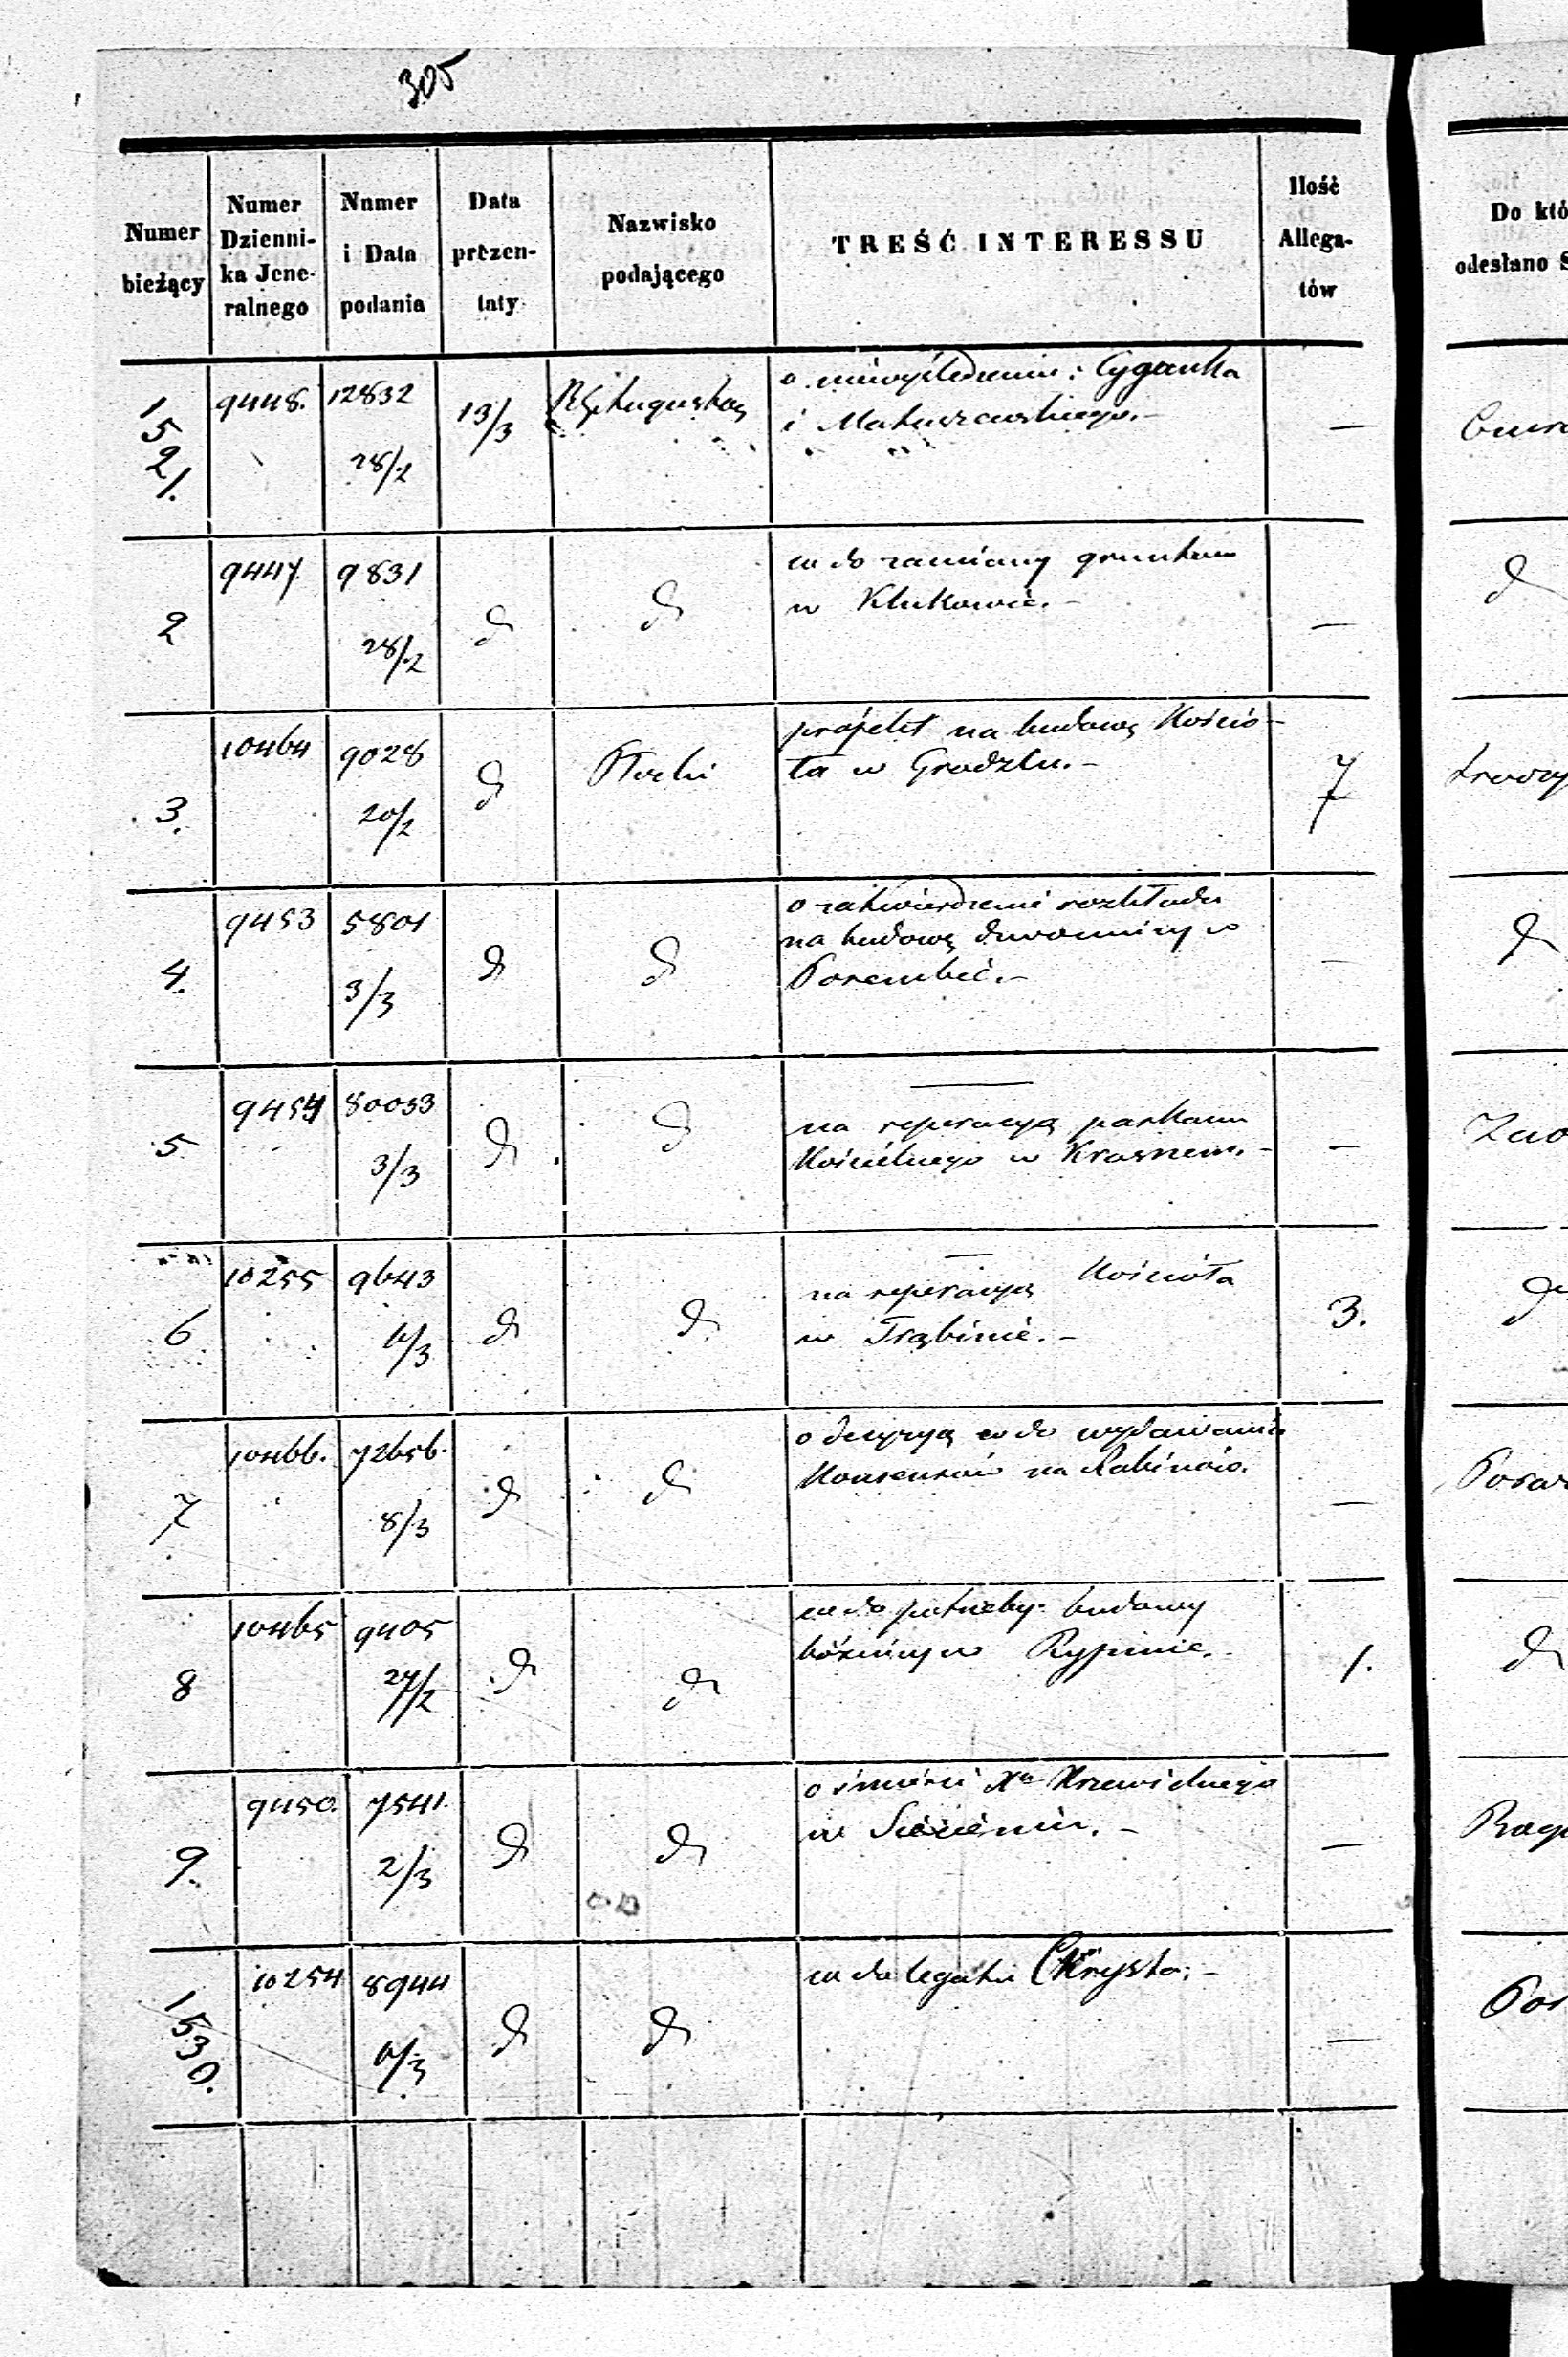 305
Numer bieżący | Numer Dzienni- ka Jene- ralnego | Numer i Data podania | Data prezen- taty | Nazwisko podającego | TREŚĆ INTERESSU | Ilość Allega- tów | Do któ odesłano S
1521. | 9448. | 12832 28/2 | 13/3 | o niewyśledzeniu: Cyganka
i Matuszewskiego.- | —
2 | 9447 | 9831 28/2 | d | d | co do zamiany gruntów
w Klukowie.- | — | d
3. | 10464 | 9028 20/2 | d | Płocki | projekt na budowę Kościo-
ła w Grodzku.- | 7
4. | 9453 | 5801 3/3 | d | d | o zatwierdzenie rozkładu
na budowę dzwonnicy w
Porembie.- | — | d
5 | 9454 | 80033 3/3 | d | d | —
na reperacyą parkanu
Kościelnego w Krasnem.- | —
6 | 10255 | 9643 6/3 | d | d | —
na reperacyą Kościoła
w Trąbinie.- | 3. | d
7 | 10466. | 72656. 8/3 | d | d | o decyzyą co do wydawania
Konsensów na Rabinów. | —
8 | 10465 | 9405 27/2 | d | d | co do potrzeby budowy
bóżnicy w Rypinie.- | 1. | d
9. | 9450. | 7541. 2/3 | d | d | o śmierci Xa
w | —
1530. | 10254 | 8944 6/3 | d | d | co do legatu | —